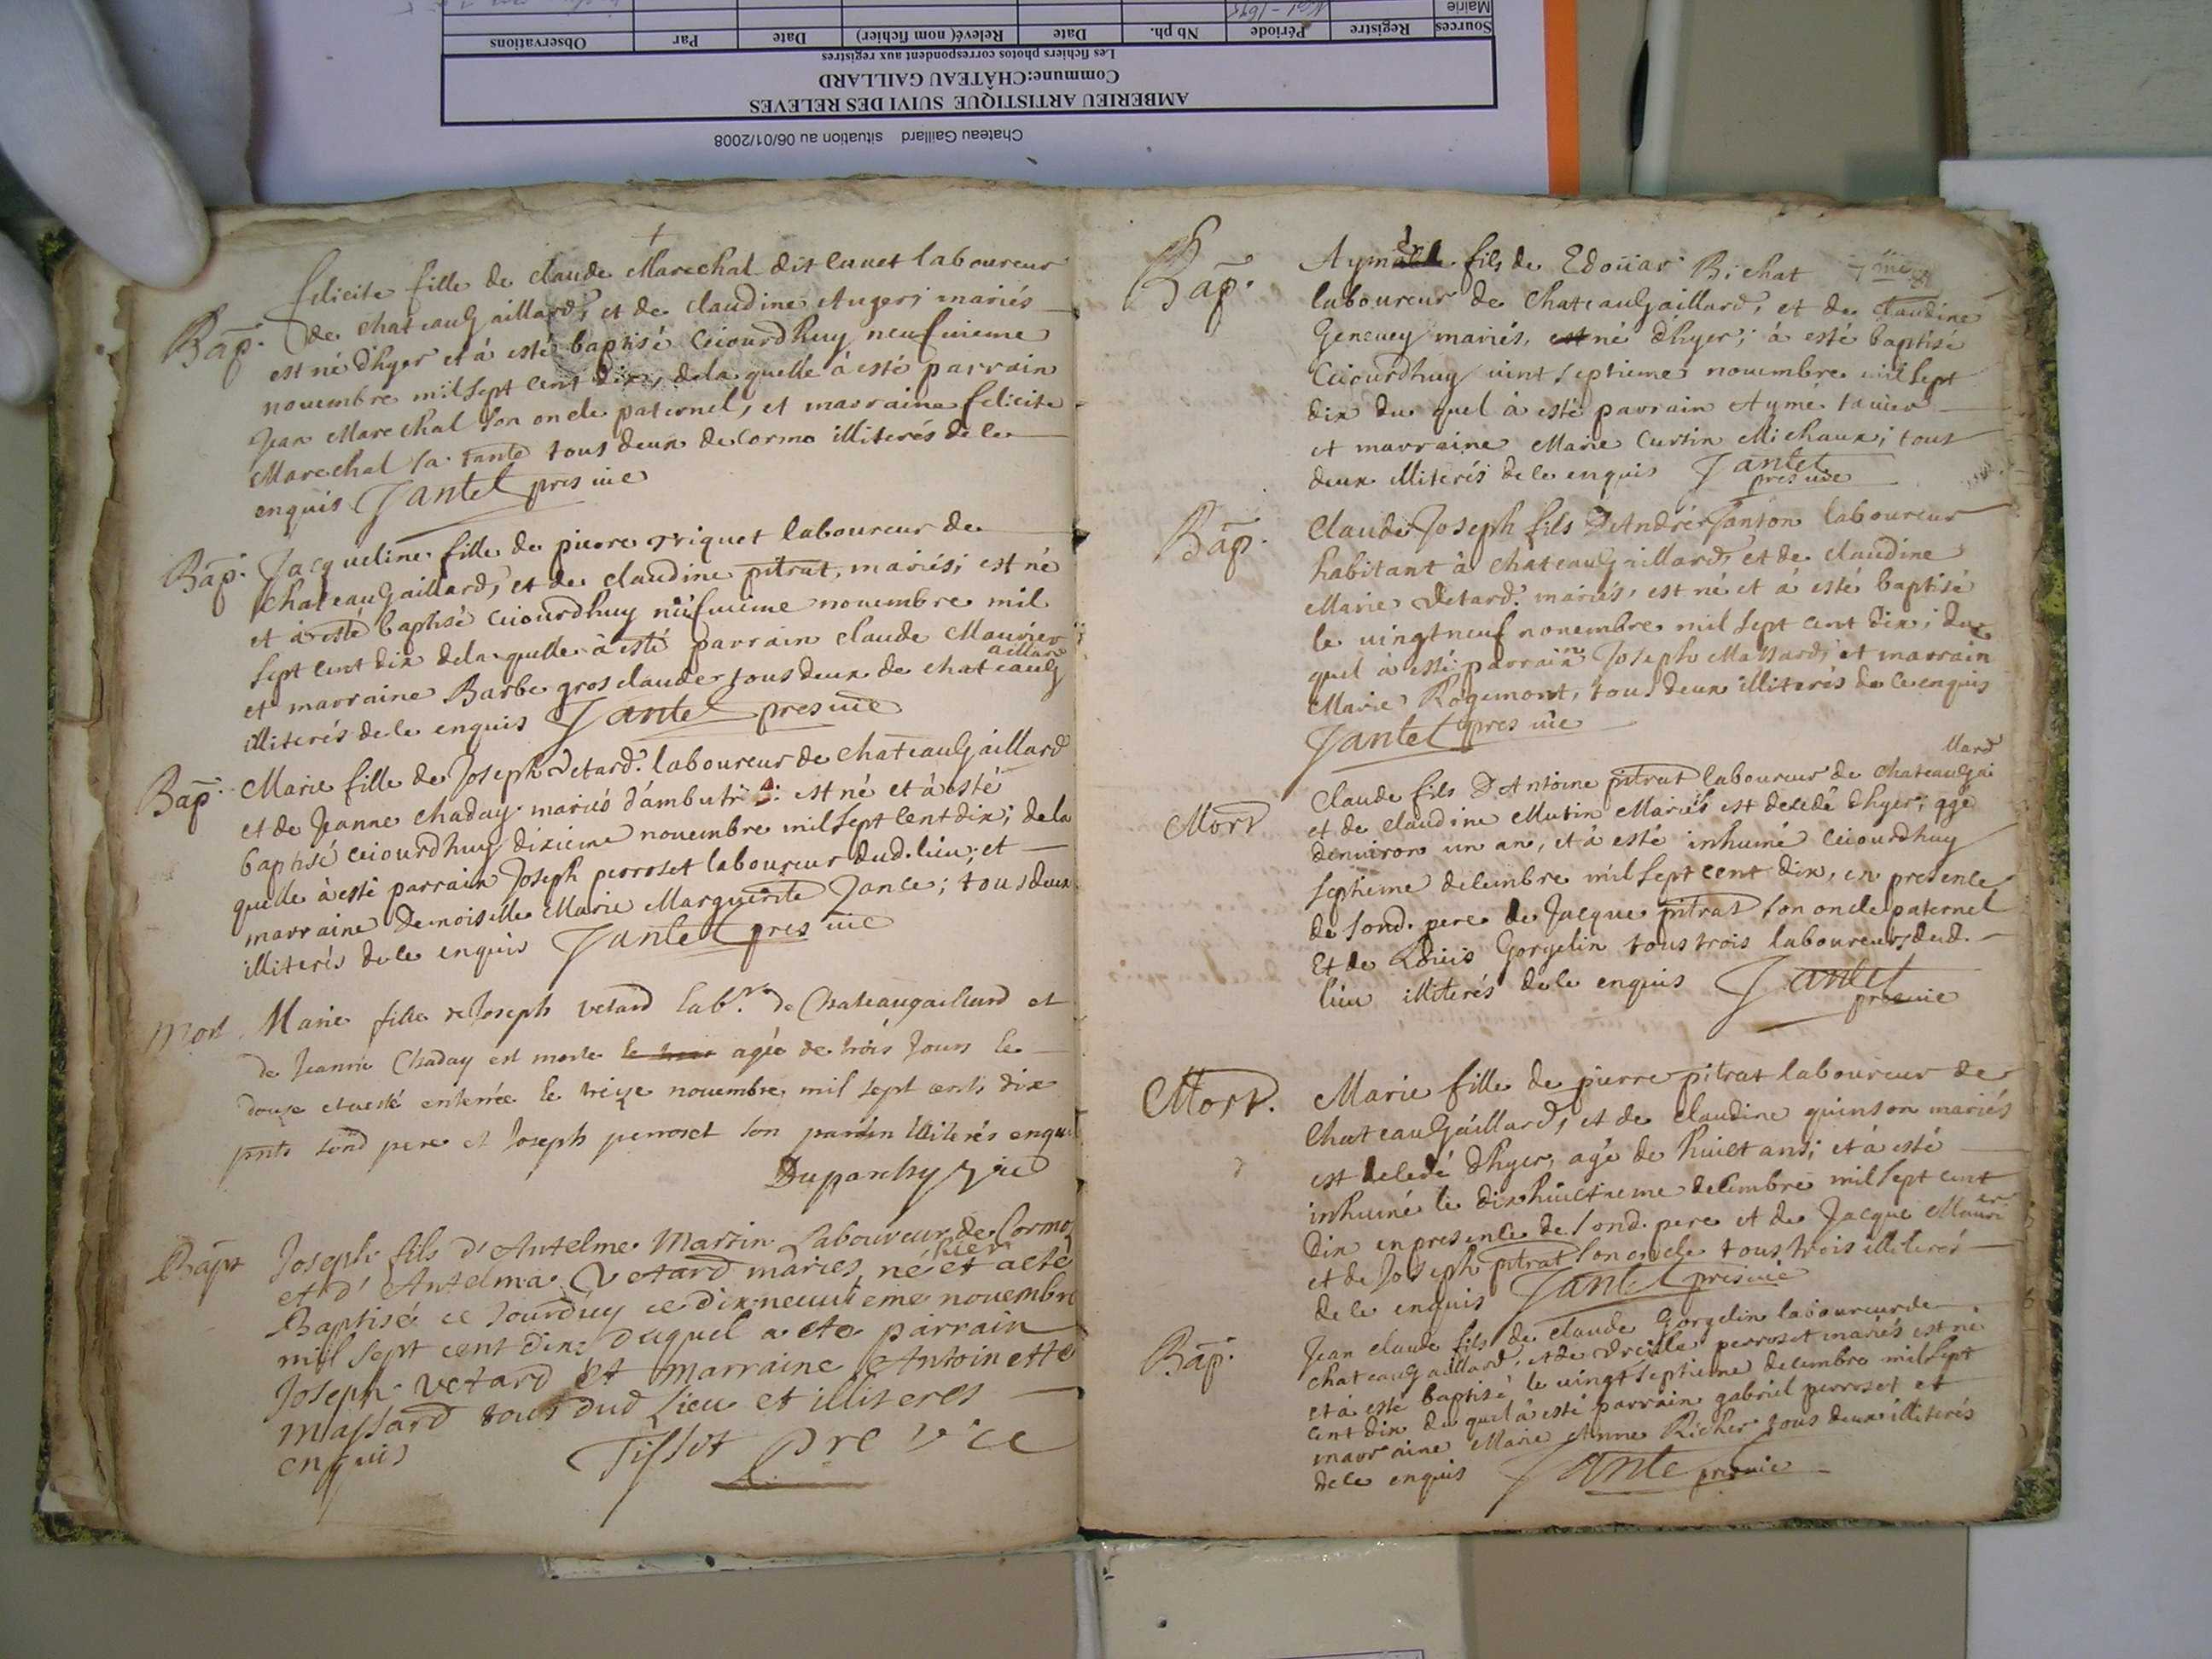 Chateau Gaillard situation au 06/01/2008
AMBERIEU ARTISTIQUE SUIVI DES RELEVES
Commune:CHÂTEAU GAILLARD
Les fichiers photos correspondent aux registres
Sources Registre Période Nb ph. Date Relevé( nom fichier) Date Par Observations
Mairie
Bap. felicite fille de claude Marechal dit laboureur
de chateauGaillard, et de claudine Augeri mariés
est né d'hyer et à esté baptisé ceiourdhuy neufuieme
nouembre mil sept cent dix, dela quelle à esté parrain
Jean Marechal son oncle paternel, et marraine felicite
Marechal sa tante tous deux de cormo illiterés de ce
enquis Jantet pres uic
Bap. Jacqueline fille de pierre triquet laboureur de
chateauGaillard, et de claudine pitrat, mariés; est né
et à esté baptisé ceiourdhuy neufuieme nouembre mil
sept cent dix dela quelle à esté parrain claude Maurier
et marraine Barbe gros claude tous deux de chateaug
aillard
illiterés de ce enquis Jantet pres uic
Bap. Marie fille de Joseph Vetard. laboureur de chateauGaillard
et de Jeanne chaday mariés d'ambutri est né et à esté
baptisé ceiourdhuy dixieme nouembre mil sept cent dix; dela
quelle à esté parrain Joseph perroset laboureur dud. lieu; et
marraine demoiselle Marie Marguerite Jance; tous deux
illiterés de ce enquis Jantet pres uic
Mort Marie fille de Joseph vetard lab.r de Chateaugaillard et
de Jeanne Chaday est morte agée de trois Jours le
douze et a esté enterrée le treize nouembre mil sept cents dix
pnts sond pere et Joseph perroset son parrin illiterés enquis
Duponchy vic
Bapt Joseph fils d'Antelme Martin Laboureur de Cormoz
et d'Antelma Vetard mariés, né hier et a eté
Baptisé ce Jourduy ce dix neuuieme nouembre
mil sept cent dix duquel a eté parrain
Joseph vetard et marraine Antoinette
massard tous dud Lieu et illiteres
enquis Tissot pre vic
Bap. Aymé fils de Edoüar Bichat
laboureur de chateauGaillard, et de claudine
Geneuey mariés, né d'hyer; à esté baptisé
ceiourdhuy uint septieme nouembre mil sept
dix du quel à esté parrain Aymé tauier
et marraine Marie Curtin Michaux; tous
deux illiterés de ce enquis Jantet
pres uic
Bap. Claude Joseph fils D'André Janton laboureur
habitant à chateauGaillard, et de claudine
Marie Vetard. mariés, est né et à esté baptisé
le uingtneuf nouembre mil sept cent dix; du
quel à esté parrain Joseph Massard, et marrain
Marie Rogemont, tous deux illiterés de ce enquis
Jantet pres uic
Mort Claude fils D'Antoine pitrat laboureur de chateauGai
llard
et de claudine Mutin Mariés est decedé d'hyer; agé
denuiron un an, et à esté inhumé ceiourdhuy
septieme decembre mil sept cent dix, en presence
de sond. pere de Jacque pitrat son oncle paternel
Et de Loüis Gorgelin tous trois laboureurs dud.
lieu illiterés de ce enquis Jantet
pres uic
Mort. Marie fille de pierre pitrat laboureur de
ChateauGaillard, et de claudine quinson mariés
est decedé d'hyer, agé de huict ans; et à esté
inhumé le dixhuictieme decembre mil sept cent
dix en presence de sond. pere et de Jacque Mauri
er
et de Joseph pitrat son oncle tous trois illiterés
de ce enquis Jantet pres uic
Bap. Jean claude fils de claude Gorgelin laboureur de
chateauGaillard, et de perroset mariés est né
et à esté baptisé le uingt septieme decembre mil sept
cent dix du quel à esté parrain gabriel perroset et
marraine Marie Anne Richer tous deux illiterés
de ce enquis Jante pres uic